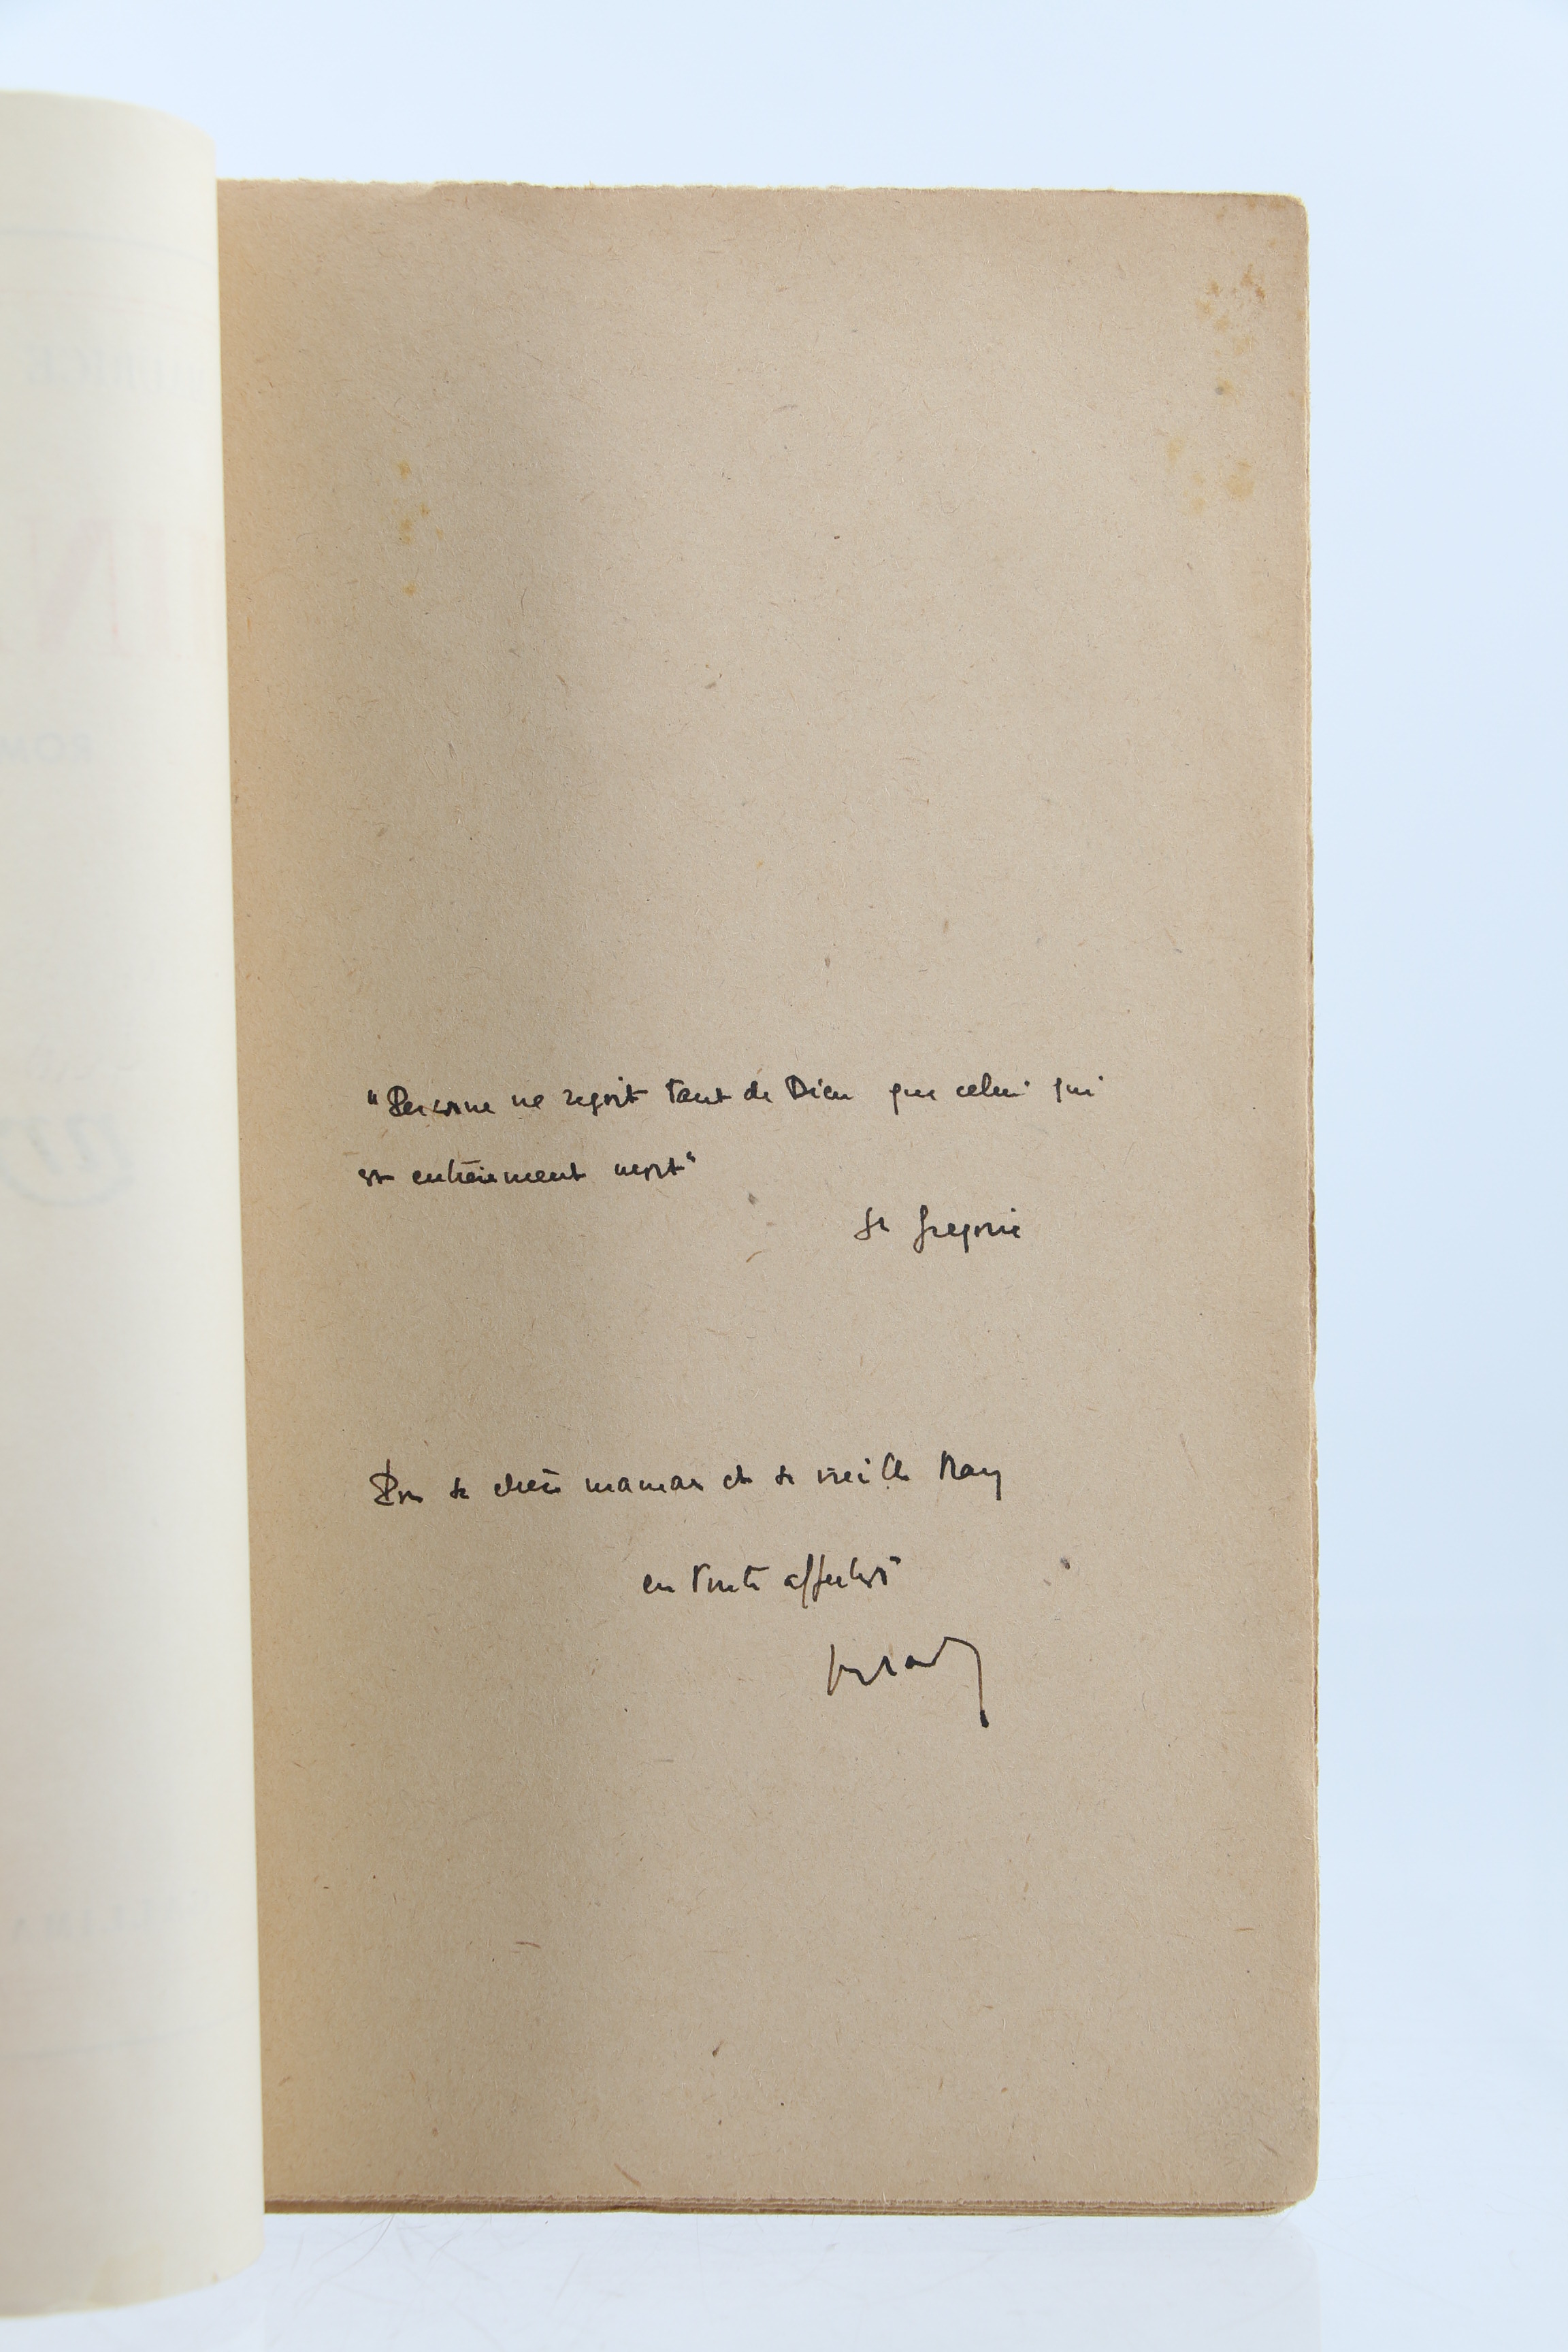 "Personne ne reçoit tant de Dieu que celui qui
est entièrement mort"
St Grégoire
Pour sa chère maman et sa vieille May
en toute affection